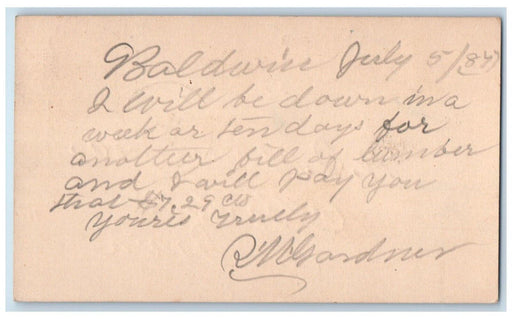 Baldwin July 5/87
I will be down in a
week or ten days for
another bill of lumber
and I will pay you
that $7.29 cts
Youres Truely
R M Gardner